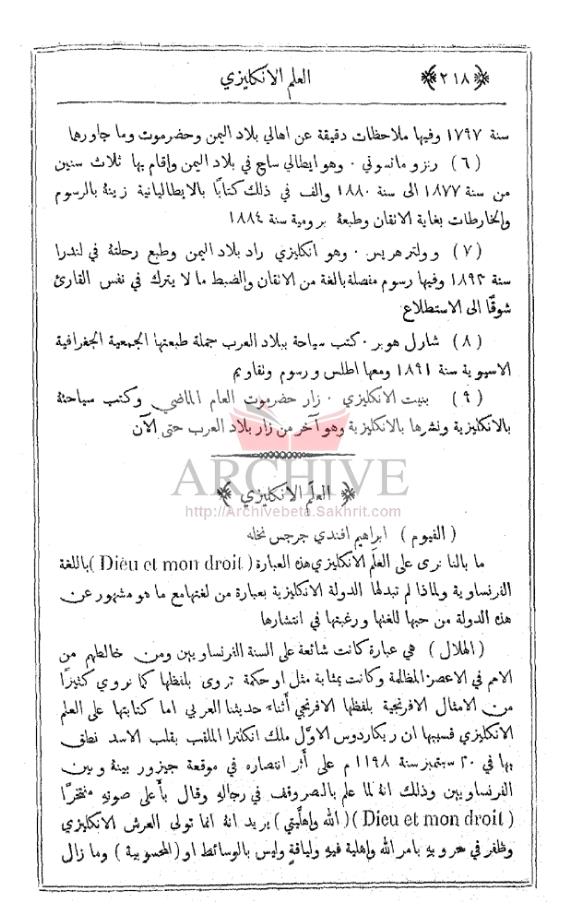 ﴿٢١٨﴾ العلم الانكليزي
سنة ١٧٩٧ وفيها ملاحظات دقيقة عن اهالي بلاد اليمن وحضرموت وما جاورها
(٦) رنزو مانسوني · وهو ايطالي ساح في بلاد اليمن واقام بها ثلاث سنين
من سنة ١٨٧٧ الى سنة ١٨٨٠ والف في ذلك كتابًا بالايطاليانية زينهُ بالرسوم
والخارطات بغاية الاتقان وطبعهُ برومية سنة ١٨٨٤
(٧) وولتر هريس · وهو انكليزي راد بلاد اليمن وطبع رحلتهُ في لندرا
سنة ١٨٩٣ وفيها رسوم مفصلة بالغة من الاتقان والضبط ما لا يترك في نفس القارئ
شوقًا الى الاستطلاع
(٨) شارل هوبر · كتب سياحة ببلاد العرب جملة طبعتها الجمعية الجغرافية
الاسيوية سنة ١٨٩١ ومعها اطلس ورسوم وتقاويم
(٩) بنيت الانكليزي · زار حضرموت العام الماضي وكتب سياحتهُ
بالانكليزية ونشرها بالانكليزية وهو آخر من زار بلاد العرب حتى الآن
ARCHIVE
﴿ العلم الانكليزي ﴾
http://Archivebeta.Sakhrit.com
(الفيوم) ابراهيم افندي جرجس نخله
ما بالنا نرى على العلَم الانكليزي هذه العبارة (Dieu et mon droit) باللغة
الفرنساوية ولماذا لم تبدلها الدولة الانكليزية بعبارة من لغتها مع ما هو مشهور عن
هذه الدولة من حبها للغتها ورغبتها في انتشارها
(الهلال) هي عبارة كانت شائعة على السنة الفرنساويين ومن خالطهم من
الامم في الاعصر المظلمة وكانت بمثابة مثل او حكمة تروى بلفظها كما نروي كثيرًا
من الامثال الافرنجية بلفظها الافرنجي أثناء حديثنا العربي اما كتابتها على العلم
الانكليزي فسببها ان ريكاردوس الاوّل ملك انكلترا الملقب بقلب الاسد نطق
بها في ٢٠ سبتمبر سنة ١١٩٨ م على أثر انتصاره في موقعة جيزور بينهُ وبين
الفرنساويين وذلك انهُ لما علم بالنصر وقف في رجالهِ وقال بأعلى صوتهِ مفتخرًا
(Dieu et mon droit) (الله وإهليّتي) يريد انهُ انما تولى العرش الانكليزي
وظفر في حروبهِ بامر الله واهلية فيهِ ولياقةٍ وليس بالوسائط او (المحسوبية) وما زال